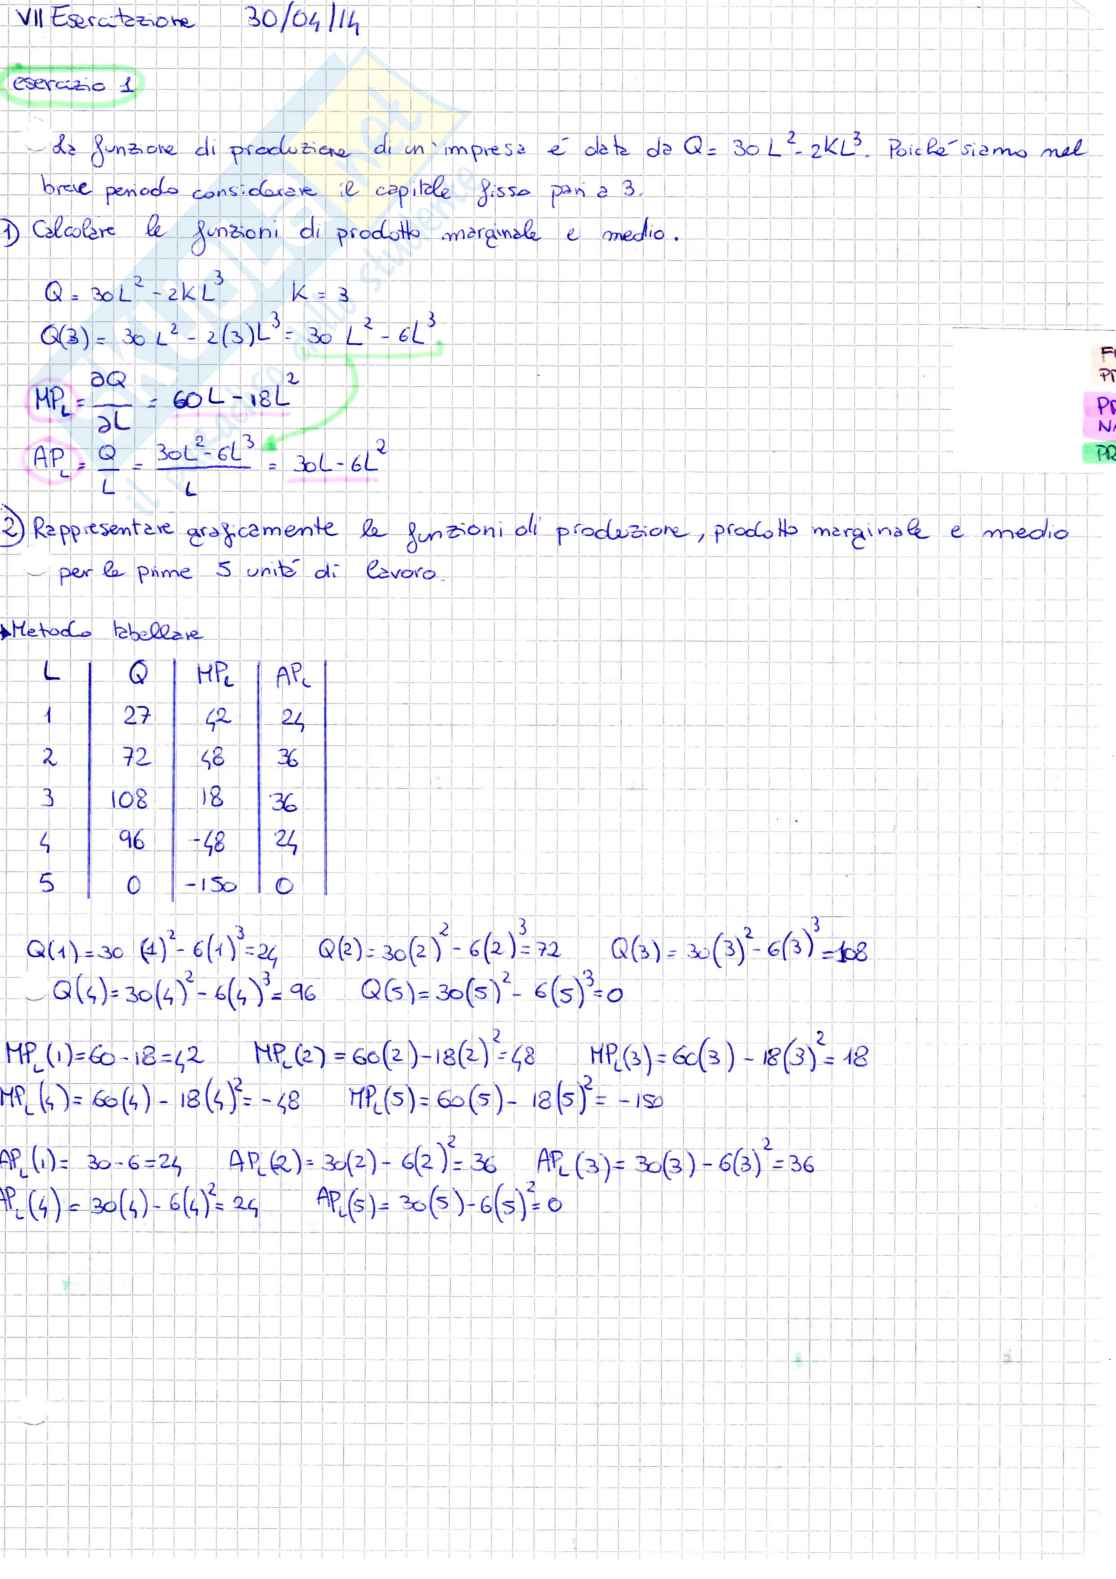 VII Esercitazione 30/04/14
esercizio 1
La funzione di produzione di un'impresa é data da Q = 30L² - 2KL³. Poiché siamo nel
breve periodo considerare il capitale fisso pari a 3.
1) Calcolare le funzioni di prodotto marginale e medio.
Q = 30L² - 2KL³ K = 3
Q(3) = 30L² - 2(3)L³ = 30 L² - 6L³
MP_L = ∂Q/∂L = 60L - 18L²
AP_L = Q/L = (30L² - 6L³)/L = 30L - 6L²
2) Rappresentare graficamente le funzioni di produzione, prodotto marginale e medio
per le prime 5 unitá di lavoro.
Metodo tabellare
L Q MP_L AP_L
1 27 42 24
2 72 48 36
3 108 18 36
4 96 -48 24
5 0 -150 0
Q(1) = 30 (1)² - 6(1)³ = 24 Q(2) = 30(2)² - 6(2)³ = 72 Q(3) = 30(3)² - 6(3)³ = 108
Q(4) = 30(4)² - 6(4)³ = 96 Q(5) = 30(5)² - 6(5)³ = 0
MP_L(1) = 60 - 18 = 42 MP_L(2) = 60(2) - 18(2)² = 48 MP_L(3) = 60(3) - 18(3)² = 18
MP_L(4) = 60(4) - 18(4)² = -48 MP_L(5) = 60(5) - 18(5)² = -150
AP_L(1) = 30 - 6 = 24 AP_L(2) = 30(2) - 6(2)² = 36 AP_L(3) = 30(3) - 6(3)² = 36
AP_L(4) = 30(4) - 6(4)² = 24 AP_L(5) = 30(5) - 6(5)² = 0